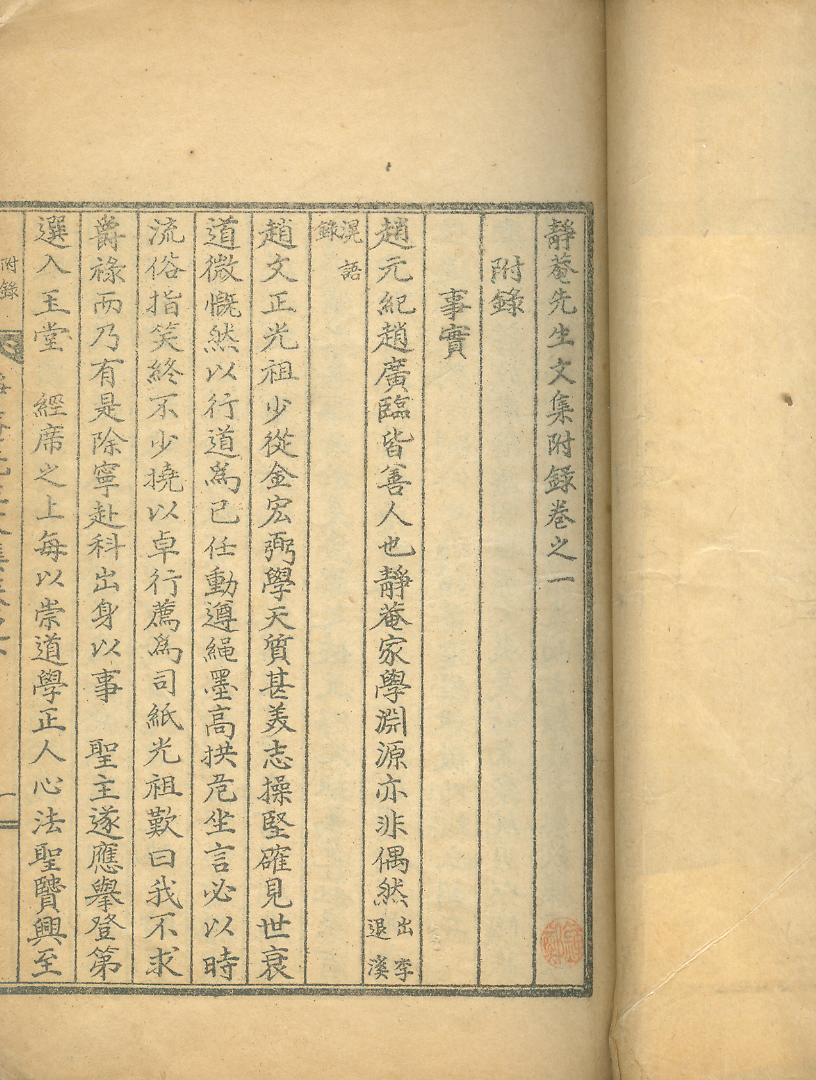 靜菴先生文集附錄卷之一
附錄
事實
趙元紀趙廣臨皆善人也靜菴家學淵源亦非偶然出李退溪
滉語錄
趙文正光祖少從金宏弼學天質甚美志操堅確見世衰
道微慨然以行道爲己任動遵繩墨高拱危坐言必以時
流俗指笑終不少撓以卓行薦爲司紙光祖歎曰我不求
爵祿而乃有是除寧赴科出身以事 聖主遂應擧登第
選入玉堂 經席之上每以崇道學正人心法聖贒興至
附錄